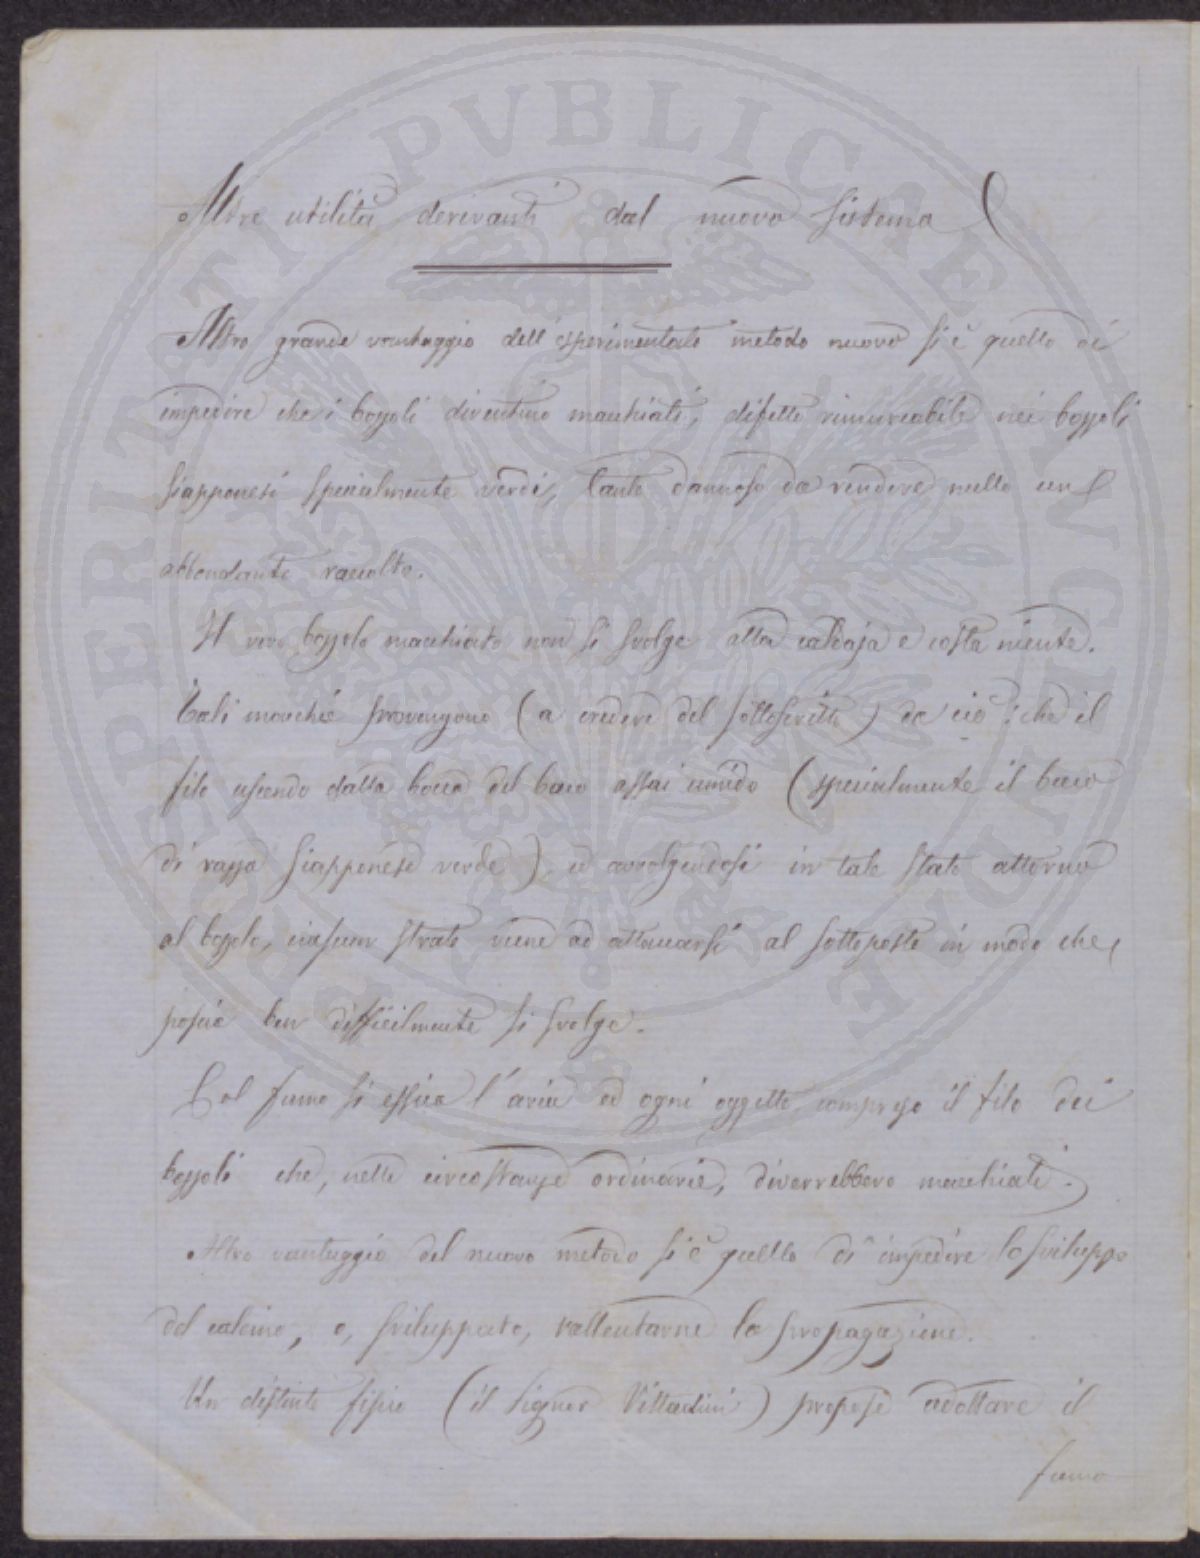 Altre utilità derivanti dal nuovo sistema
Altro grande vantaggio dell'esperimentato metodo nuovo si è quello di
impedire che i bozzoli diventino macchiati, difetto rimarcabile nei bozzoli
Giapponesi specialmente verdi, tanto dannoso da rendere nullo un
abbondante raccolto.
Il vero bozzolo macchiato non si svolge alla caldaja e costa niente.
Tali macchie provengono (a credere del sottoscritto) da ciò: che il
filo uscendo dalla bocca del baco assai umido (specialmente il baco
di razza Giapponese verde), ed avvolgendosi in tale stato attorno
al bozolo, ciascun strato viene ad attaccarsi al sottoposto in modo che
poscia ben difficilmente si svolge.
Col fumo si essica l'aria ed ogni oggetto compreso il filo dei
bozzoli che, nelle circostanze ordinarie, diverrebbero macchiati.
Altro vantaggio del nuovo metodo si è quello di impedire lo sviluppo
del calcino, o, sviluppato, rallentarne la propagazione.
Un distinto fisico (il Signor Vittadini) propose adottare il
fumo
PROSPERITATI PVBLICAE AVGENDAE